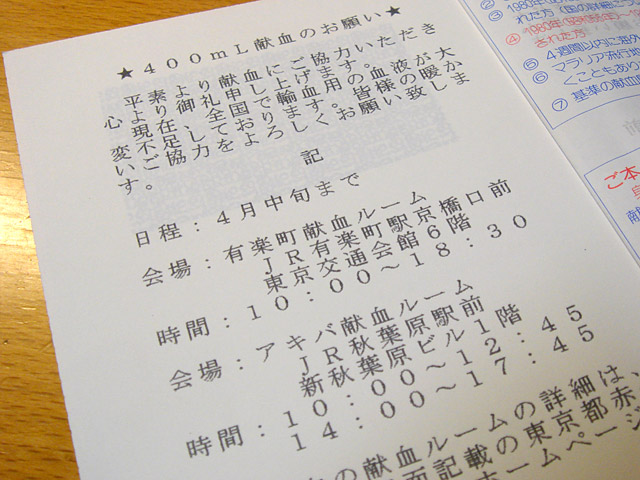 ★400mL献血のお願い★
平素より献血にご協力いただき
心より御礼申し上げます。
現在、全国で輸血用の血液が大
変不足しております。皆様の暖か
いご協力をよろしくお願い致しま
す。
記
日程：4月中旬まで
会場：有楽町献血ルーム
JR有楽町駅京橋口前
東京交通会館6階
時間：10：00～18：30
会場：アキバ献血ルーム
JR秋葉原駅前
新秋葉原ビル1階
時間：10：00～12：45
14：00～17：45
の献血ルームの詳細は、
面記載の東京都赤
ホームページ
②
された方
④ 1980年
された方
⑤ 4週間以内に海外
⑥ マラリア流行
くこともあり
⑦ 基準の献血
ご本